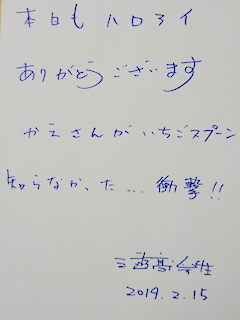 本日も ハロアイ
ありがとうございます
かえさんがいちごスプーン
知らなかった… 衝撃!!
2019.2.15